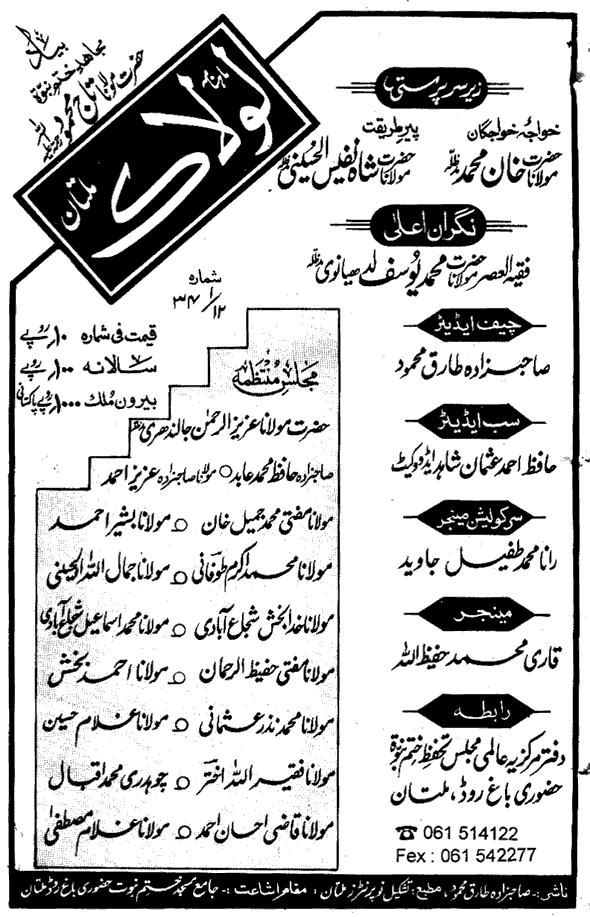 بیاد
مجاہد ختم نبوۃ
حضرت مولانا تاج محمود رحمۃ اللہ علیہ
ماہنامہ
لولاک
ملتان
زیر سرپرستی
خواجۂ خواجگان
حضرت مولانا خان محمد مدظلہ
پیر طریقت
حضرت مولانا شاہ نفیس الحسینی مدظلہ
نگران اعلیٰ
فقیہ العصر حضرت مولانا محمد یوسف لدھیانوی مدظلہ
چیف ایڈیٹر
صاحبزادہ طارق محمود
سب ایڈیٹر
حافظ احمد عثمان شاہد ایڈووکیٹ
سرکولیشن مینجر
رانا محمد طفیل جاوید
مینجر
قاری محمد حفیظ اللہ
رابطہ
دفتر مرکزیہ عالمی مجلس تحفظ ختم نبوۃ
حضوری باغ روڈ، ملتان
☎ 061 514122
Fex : 061 542277
شمارہ
۱/۱۲ ۳۴
قیمت فی شمارہ ۱۰ روپے
سالانہ ۱۰۰ روپے
بیرون ملک ۱۰۰۰ روپے پاکستانی
مجلس منتظمہ
حضرت مولانا عزیز الرحمٰن جالندھری مدظلہ
صاحبزادہ حافظ محمد عابد ○ مولانا صاحبزادہ عزیز احمد
مولانا مفتی محمد جمیل خان ○ مولانا بشیر احمد
مولانا محمد اکرم طوفانی ○ مولانا جمال اللہ الحسینی
مولانا خدا بخش شجاع آبادی ○ مولانا محمد اسماعیل شجاع آبادی
مولانا مفتی حفیظ الرحمان ○ مولانا احمد بخش
مولانا محمد نذر عثمانی ○ مولانا غلام حسین
مولانا فقیر اللہ اختر ○ چوہدری محمد اقبال
مولانا قاضی احسان احمد ○ مولانا غلام مصطفیٰ
ناشر :- صاحبزادہ طارق محمود، مطبع : تشکیل نو پرنٹرز ملتان : مقام اشاعت :- جامع مسجد ختم نبوت حضوری باغ روڈ ملتان